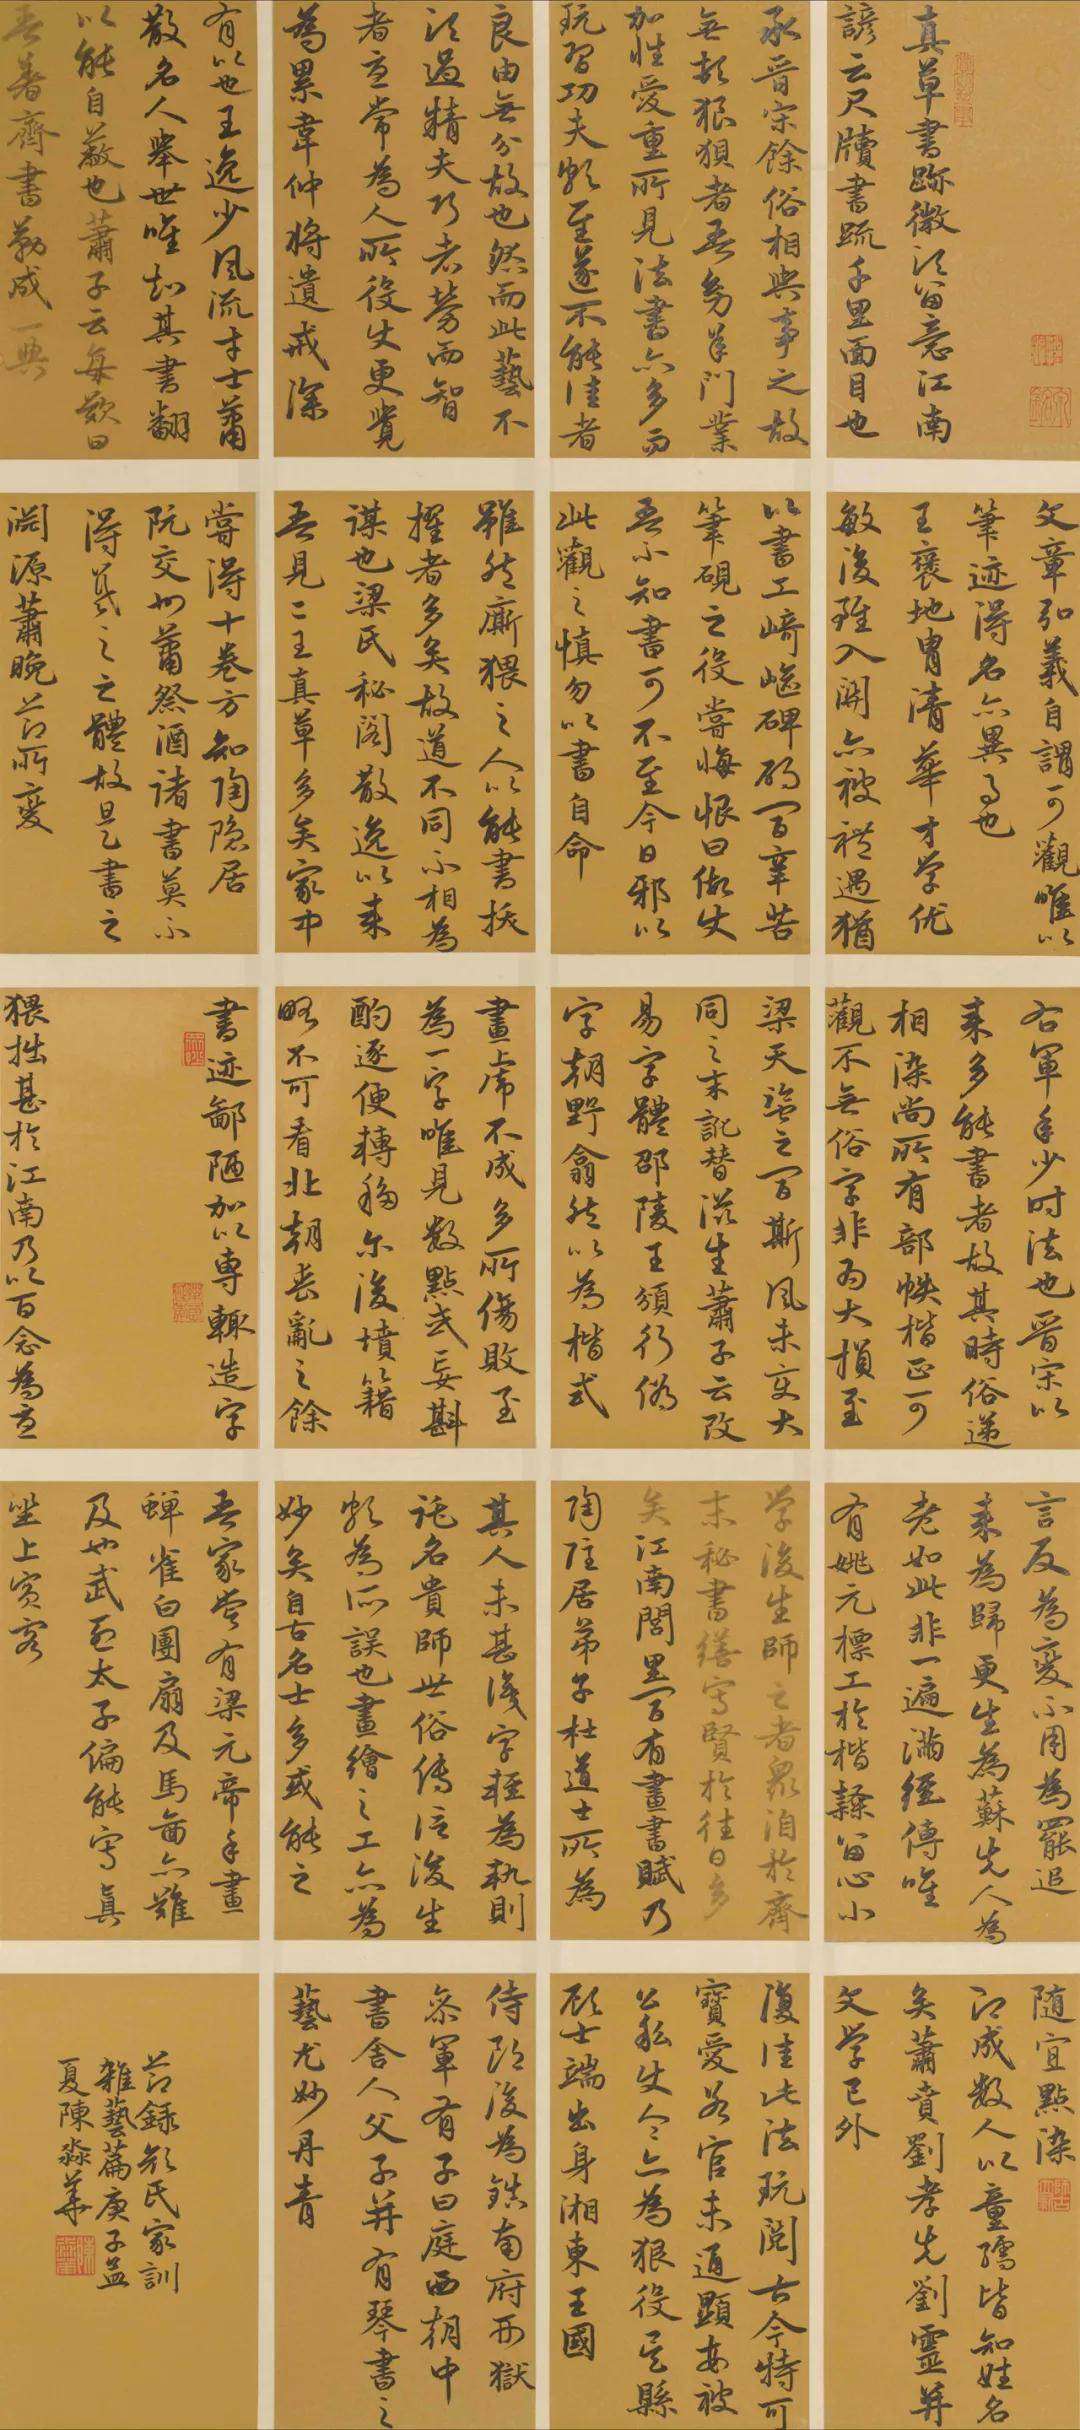 真草書跡微須留意江南
諺云尺牘書疏千里面目也
承晉宋餘俗相與事之故
無頓狼狽者吾幼承門業
加性愛重所見法書亦多而
玩習功夫頗至遂不能佳者
良由無分故也然而此藝不
須過精夫巧者勞而智
者憂常為人所役使更覺
為累韋仲將遺戒深
有以也王逸少風流才士蕭
散名人舉世唯知其書翻
以能自蔽也蕭子云每歎曰
吾著齊書勒成一典
文章弘義自謂可觀唯以
筆迹得名亦異事也
王褒地胄清華才学優
敏後雖入關亦被禮遇猶
以書工崎嶇碑碣間辛苦
筆硯之役嘗悔恨曰假使
吾不知書可不至今日邪以
此觀之慎勿以書自命
雖然廝猥之人以能書拔
擢者多矣故道不同不相為
謀也梁氏秘閣散逸以來
吾見二王真草多矣家中
嘗得十卷方知陶隱居
阮交州蕭祭酒諸書莫不
得羲之之體故是書之
淵源蕭晚節所變
右軍年少時法也晉宋以
來多能書者故其時俗遞
相染尚所有部帙楷正可
觀不無俗字非為大損至
梁天監之間斯風未變大
同之末訛替滋生蕭子云改
易字體邵陵王頗行偽
字朝野翕然以為楷式
畫虎不成多所傷敗至
為一字唯見數點或妄斟
酌逐便轉移尔後墳籍
略不可看北朝喪亂之餘
書迹鄙陋加以專輒造字
猥拙甚於江南乃以百念為憂
言反為變不用為罷追
來為歸更生為蘇先人為
老如此非一遍滿經傳唯
有姚元標工於楷隸留心小
学後生師之者眾洎於齊
末秘書繕寫賢於往日多
矣江南閭里間有畫書賦乃
陶隱居弟子杜道士所為
其人未甚識字輕為軌則
託名貴師世俗傳信後生
頗為所誤也畫繪之工亦為
妙矣自古名士多或能之
吾家嘗有梁元帝手畫
蟬雀白團扇及馬圖亦難
及也武烈太子偏能寫真
坐上賓客
隨宜點染
即成數人以童孺皆知姓名
矣蕭賁劉孝先劉靈并
文学已外
復佳此法玩閱古今特可
寶愛若官未通顯每被
公私使令亦為猥役吳縣
顧士端出身湘東王國
侍郎後為鎮南府刑獄
參軍有子曰庭西朝中
書舍人父子并有琴書之
藝尤妙丹青
節錄顏氏家訓
雜藝篇庚子孟
夏陳淼華